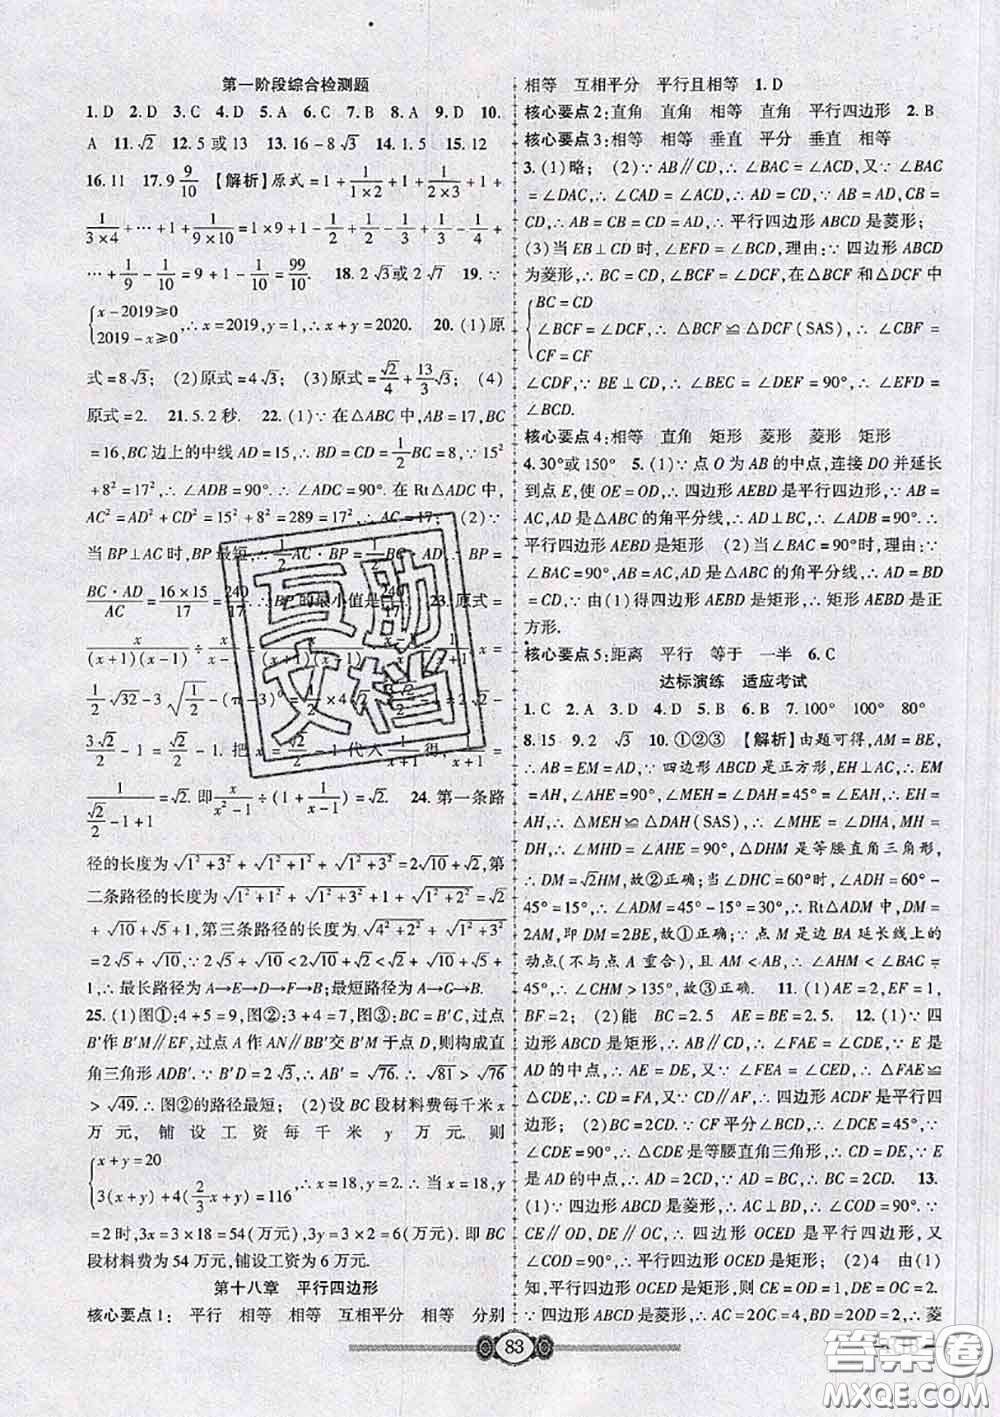 第一阶段综合检测题
1. D　2. D　3. C　4. D　5. D　6. B　7. A　8. A　9. D　10.
A　11. √2　12. 5 或 13　13. 16－8√3　14. 1. 5　15. 12
16. 11　17. 9 9/10　【解析】原式＝1＋1/(1×2)＋1＋1/(2×3)＋1＋
1/(3×4)＋…＋1＋1/(9×10)＝1×9＋1－1/2＋1/2－1/3＋1/3－1/4＋
…＋1/9－1/10＝9＋1－1/10＝99/10.　18. 2√3或2√7　19. ∵
{x－2019≥0
2019－x≥0,∴x＝2019,y＝1,∴x＋y＝2020.　20. (1)原
式＝8√3；(2)原式＝4√3；(3)原式＝√2/4＋13/3√3；(4)
原式＝2.　21. 5. 2 秒.　22. (1)∵在△ABC中,AB＝17,BC
＝16,BC边上的中线AD＝15,∴BD＝CD＝1/2BC＝8.∵15²
＋8²＝17²,∴∠ADB＝90°.∴∠ADC＝90°. 在Rt△ADC中,
AC²＝AD²＋CD²＝15²＋8²＝289＝17².∴AC＝17；(2)∵
当BP⊥AC时,BP最短,∴1/2AC·BP＝1/2BC·AD,∴BP＝
BC·AD/AC＝16×15/17＝240/17.∴BP的最小值是240/17.　23. 原式＝
x/((x＋1)(x－1))÷x/(x－1)
1/2√32－3√(1/2)－(π－3)⁰＝1/2×4√2－
3√2/2－1＝√2/2－1. 把x＝√2/2－1代入1/(x＋1)得,1/(x＋1)＝
1/(√2/2－1＋1)＝√2. 即x/(x²－1)÷(1＋1/(x－1))＝√2.　24. 第一条路
径的长度为√(1²＋3²)＋√(1²＋1²)＋√(1²＋3²)＝2√10＋√2,第
二条路径的长度为√(1²＋1²)＋√(1²＋3²)＋√(1²＋2²)＝√2
＋√10＋√5＋1,第三条路径的长度为√(4²＋2²)＋√(1²＋3²)
＝2√5＋√10,∵2√5＋√10＜2√10＋√2＜√2＋√10＋√5＋
1,∴最长路径为A→E→D→F→B;最短路径为A→G→B.
25. (1)图①:4＋5＝9,图②:3＋4＝7,图③:BC＝B′C,过点
B′作B′M∥EF,过点A作AN∥BB′交B′M于点D,则构成直
角三角形ADB′.∵B′D＝2√3,∴AB′＝√76,∴√81＞√76
＞√49.∴图②的路径最短；(2)设BC段材料费每千米x
万元,铺设工资每千米y万元.则
{x＋y＝20
3(x＋y)＋4(2/3x＋y)＝116,∴x＝18,y＝2.∴当x＝18,y
＝2时,3x＝3×18＝54(万元),3y＝3×2＝6(万元).即BC
段材料费为54万元,铺设工资为6万元.
第十八章　平行四边形
核心要点1：平行　相等　相等　互相平分　相等　分别
相等　互相平分　平行且相等　1. D
核心要点2：直角　直角　相等　直角　平行四边形　2. B
核心要点3：相等　相等　垂直　平分　垂直　相等
3. (1)略；(2)∵AB∥CD,∴∠BAC＝∠ACD,又∵∠BAC
＝∠DAC,∴∠CAD＝∠ACD,∴AD＝CD,∵AB＝AD,CB＝
CD,∴AB＝CB＝CD＝AD,∴平行四边形ABCD是菱形；
(3)当EB⊥CD时,∠EFD＝∠BCD,理由:∵四边形ABCD
为菱形,∴BC＝CD,∠BCF＝∠DCF,在△BCF和△DCF中
{BC＝CD
∠BCF＝∠DCF,∴△BCF≌△DCF(SAS),∴∠CBF＝
CF＝CF
∠CDF,∵BE⊥CD,∴∠BEC＝∠DEF＝90°,∴∠EFD＝
∠BCD.
核心要点4：相等　直角　矩形　菱形　菱形　矩形
4. 30°或150°　5. (1)∵点O为AB的中点,连接DO并延长
到点E,使OE＝OD,∴四边形AEBD是平行四边形,∵AB＝
AC,AD是△ABC的角平分线,∴AD⊥BC,∴∠ADB＝90°,∴
平行四边形AEBD是矩形　(2)当∠BAC＝90°时,理由:∵
∠BAC＝90°,AB＝AC,AD是△ABC的角平分线,∴AD＝BD
＝CD,∵由(1)得四边形AEBD是矩形,∴矩形AEBD是正
方形.
核心要点5：距离　平行　等于　一半　6. C
达标演练　适应考试
1. C　2. A　3. D　4. D　5. B　6. B　7. 100°　100°　80°
8. 15　9. 2　√3　10. ①②③　【解析】由题可得,AM＝BE,
∴AB＝EM＝AD,∵四边形ABCD是正方形,EH⊥AC,∴EM
＝AH,∠AHE＝90°,∠MEH＝∠DAH＝45°＝∠EAH,∴EH＝
AH,∴△MEH≌△DAH(SAS),∴∠MHE＝∠DHA,MH＝
DH,∴∠MHD＝∠AHE＝90°,△DHM是等腰直角三角形,
∴DM＝√2HM,故②正确；当∠DHC＝60°时,∠ADH＝60°－
45°＝15°,∴∠ADM＝45°－15°＝30°,∴Rt△ADM中,DM＝
2AM,即DM＝2BE,故①正确；∵点M是边BA延长线上的
动点(不与点A重合),且AM＜AB,∴∠AHM＜∠BAC＝
45°,∴∠CHM＞135°,故③正确.　11. (1)AE＝2,EF＝1,
BF＝2；(2)能　BC＝2.5　AC＝2.5　12. (1)∵四
边形ABCD是矩形,∴AB∥CD,∴∠FAE＝∠CDE,∵E是
AD的中点,∴AE＝DE,又∵∠FEA＝∠CED,∴△FAE≌
△CDE,∴CD＝FA,又∵CD∥AF,∴四边形ACDF是平行四
边形；(2)BC＝2CD.∵CF平分∠BCD,∴∠DCE＝45°,∵
∠CDE＝90°,∴△CDE是等腰直角三角形,∴CD＝DE,∵E
是AD的中点,∴AD＝2CD,∵AD＝BC,∴BC＝2CD.　13.
(1)∵四边形ABCD是菱形,∴AC⊥BD,∴∠COD＝90°.∵
CE∥OD,DE∥OC,∴四边形OCED是平行四边形,又
∠COD＝90°,∴平行四边形OCED是矩形；(2)4　由(1)
知,平行四边形OCED是矩形,则CE＝OD＝1,DE＝OC＝2.
∵四边形ABCD是菱形,∴AC＝2OC＝4,BD＝2OD＝2,∴菱
83
互助
文档
答案圈
MXQE.COM